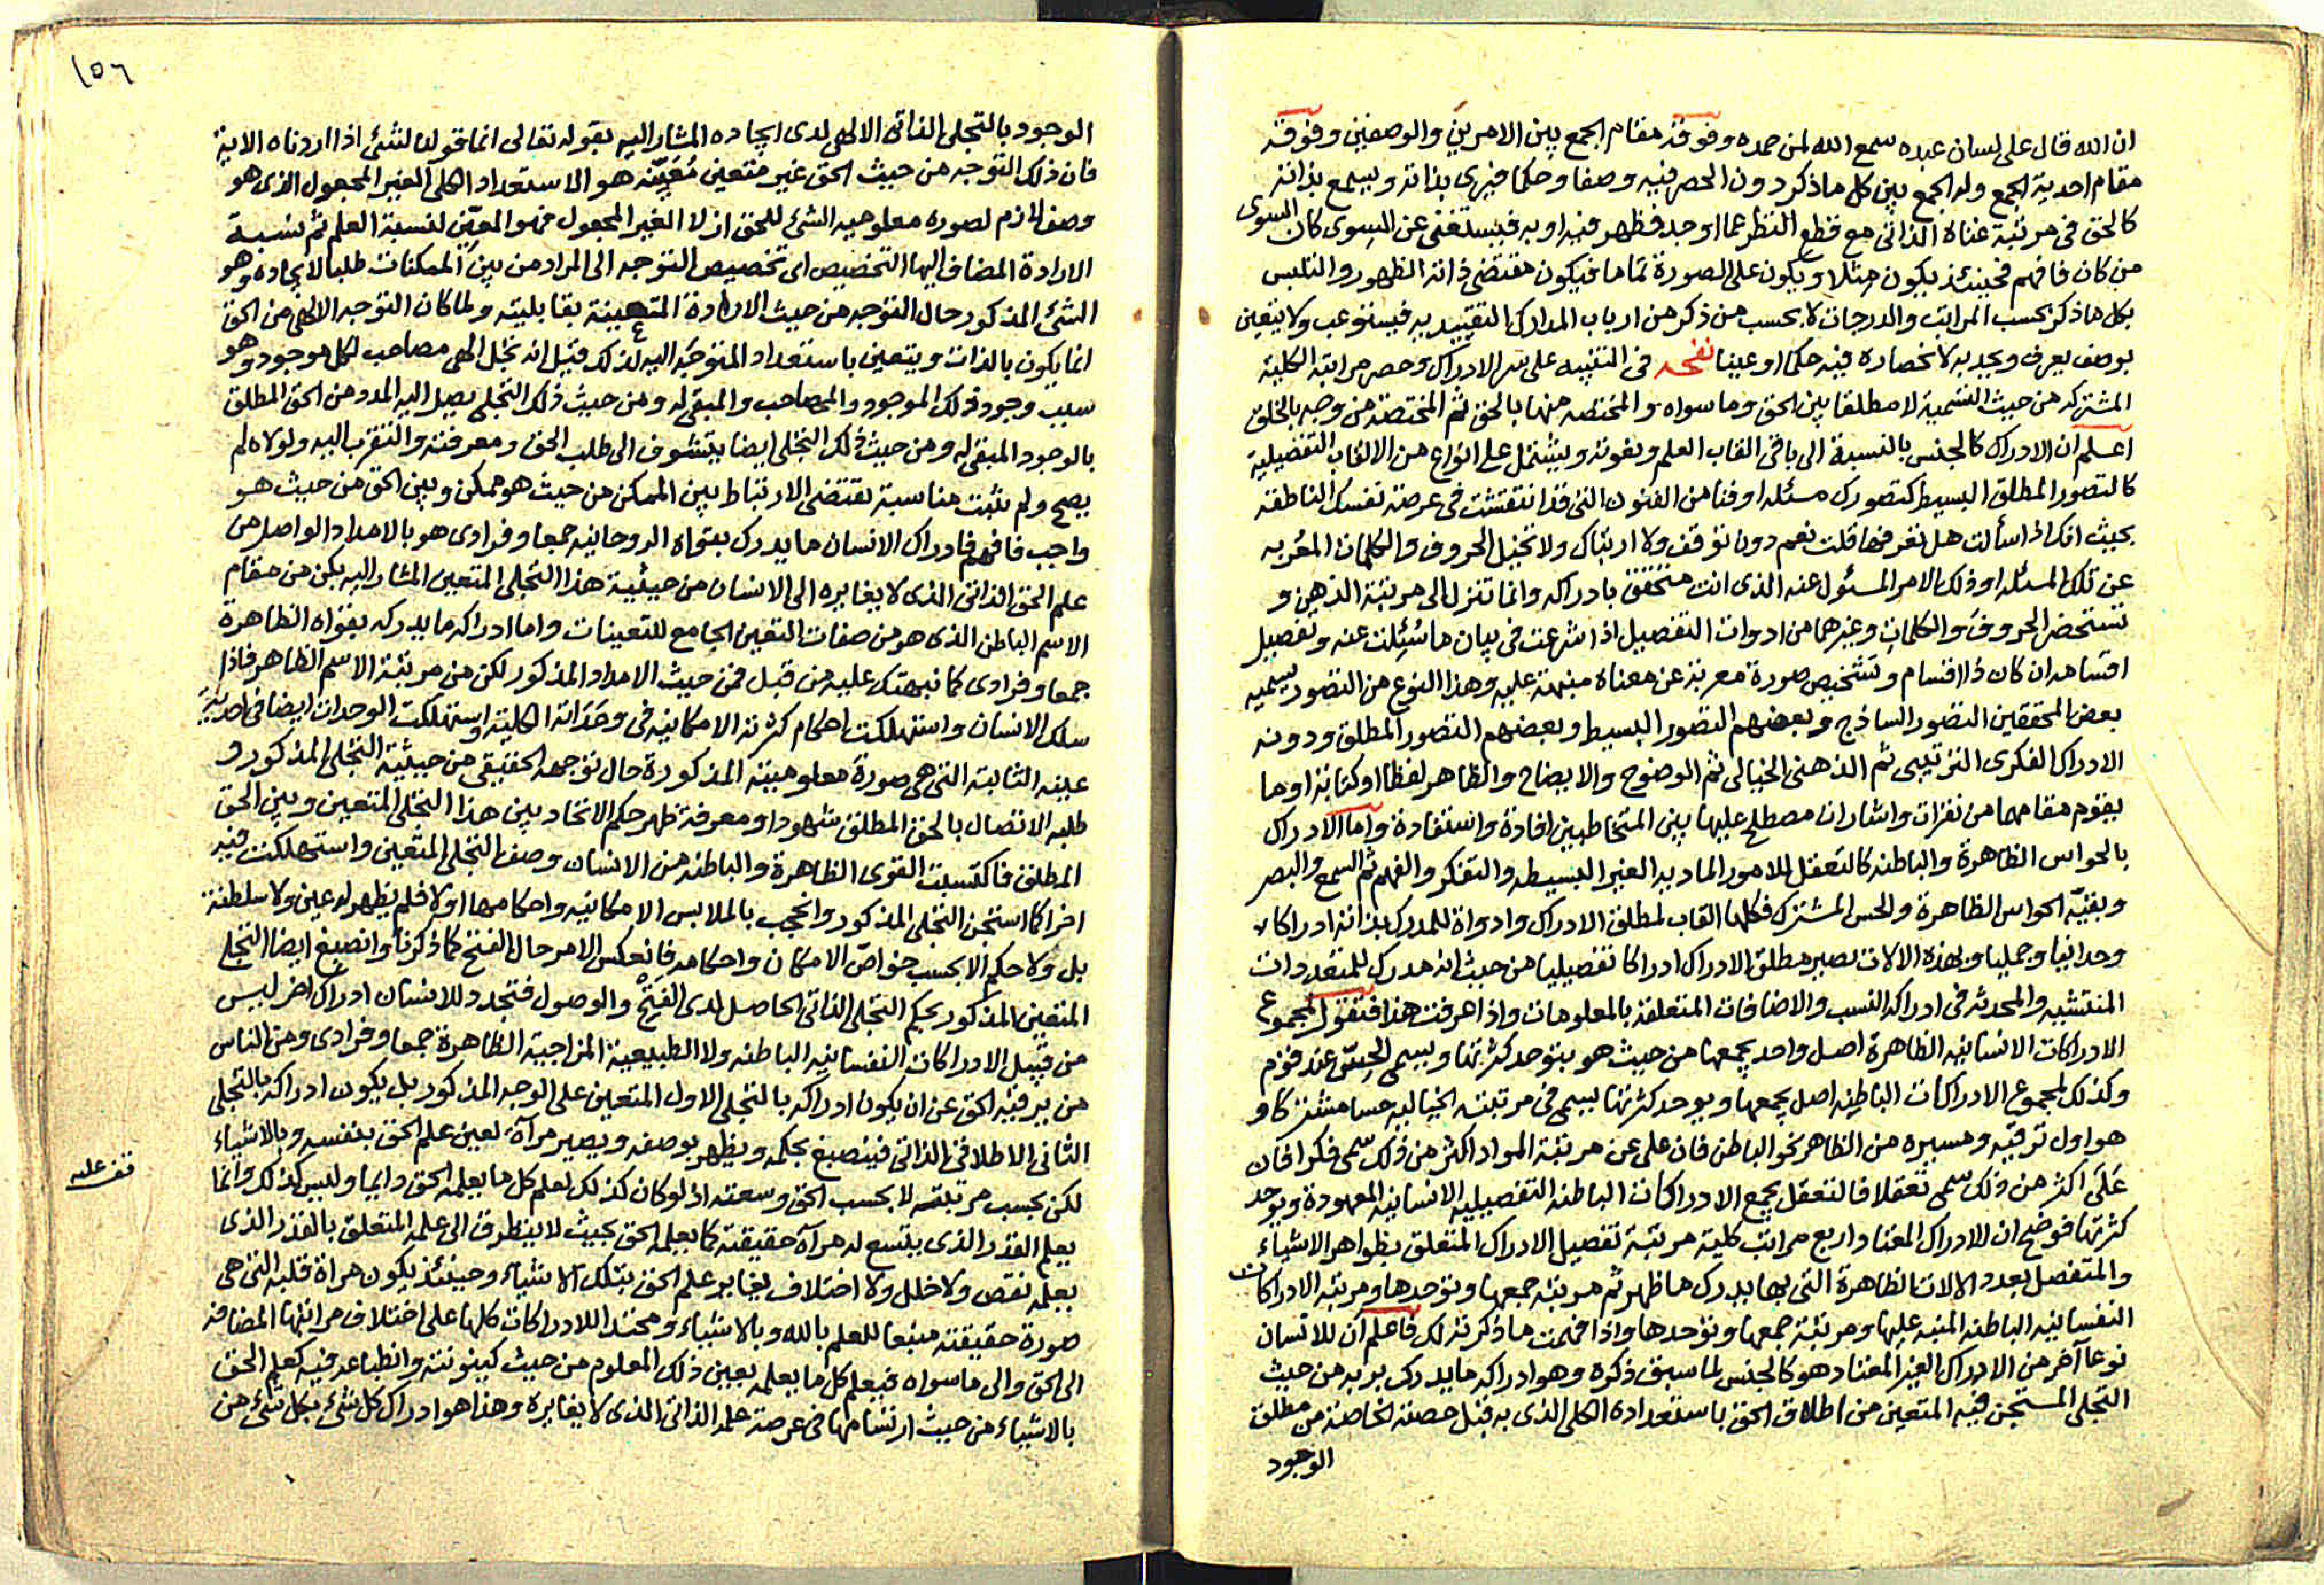 ان الله قال على لسان عبده سمع الله لمن حمده وفوقه مقام الجمع بين الامرين والوصفين وفوقه
مقام احدية الجمع وله الجمع بين كل ما ذكر دون الحصر فيه وصفا وحكما فيرى بذاته ويسمع بذاته
كالحق في مرتبة غناه الذاتى مع قطع النظر عما اوجد فظهر فيه او به فيستغنى عن السوى كان السوى
من كان فافهم فحينئذ يكون مثلا ويكون على الصورة تماما فيكون مقتضى ذاته الظهور والتلبس
بكل ما ذكر بحسب المراتب والدرجات لا بحسب من ذكر من ارباب المدارك التقييديه فيستوعب ولا يتعين
بوصف يعرف ويجد به لانحصاره فيه حكما او عينا نفحه فى التنبيه على سر الادراك وحصر مراتبه الكلية
المشتركه من حيث التسمية لا مطلقا بين الحق وما سواه والمختصه منها بالحق ثم المختصة من وجه بالخلق
اعلم ان الادراك كالجنس بالنسبة الى باقى القاب العلم ونعوته ويشتمل على انواع من الالقاب التفصيلية
كالتصور المطلق البسيط كتصورك مسئله او فنا من الفنون التى قد انتقشت فى عرصة نفسك الناطقه
بحيث انك اذا سألت هل تعرفها قلت نعم دون توقف ولا ارتباك ولا تخيل الحروف والكلمات المعربه
عن تلك المسئله او ذلك الامر المسئول عنه الذى انت متحقق بادراكه وانما تنزل الى مرتبة الذهن و
تستحضر الحروف والكلمات وغيرهما من ادوات التفصيل اذا شرعت فى بيان ما سُئِلت عنه وتفصيل
اقسامه ان كان ذا اقسام وتشخيص صورة معربة عن معناه منبهة عليه وهذا النوع من التصور يسميه
بعض المحققين التصور الساذج وبعضهم التصور البسيط وبعضهم التصور المطلق ودونه
الادراك الفكرى الترتيبى ثم الذهنى الخيالى ثم الوضوح والايضاح والظاهر لفظا او كتابة او ما
يقوم مقامهما من نقرات واشارات مصطلح عليها بين المتخاطبين افادة واستفادة واما الادراك
بالحواس الظاهرة والباطنه كالتعقل للامور الماديه الغير البسيطه والتفكر والفهم ثم السمع والبصر
وبقيّة الحواس الظاهرة والحس المشترك فكلها القاب لمطلق الادراك وادواة للمدرك بذاته ادراكا
وحدانيا وجمليا وبهذه الالات يصير مطلق الادراك ادراكا تفصيليا من حيث انه مدرك للمتعددات
المنتشيه والمحدثه فى ادراكه النسب والاضافات المتعلقة بالمعلومات واذا عرفت هذا فنقول لمجموع
الادراكات الانسانيه الظاهرة اصل واحد يجمعها من حيث هو يتوحد كثرتها ويسمى الحِسّ عند قوم
وكذلك لمجموع الادراكات الباطنه اصل يجمعها ويوحد كثرتها يسمى فى مرتبته الخياليه حسا مشتركا و
هو اول ترقيه ومسيره من الظاهر نحو الباطن فان على عن مرتبة المواد اكثر من ذلك سمى فكرا فان
على اكثر من ذلك سمى تعقلا فالتعقل يجمع الادراكات الباطنه التفصيليه الانسانيه المعهودة ويوحد
كثرتها فوضح ان للادراك المعتاد اربع مراتب كلية مرتبة تفصيل الادراك المتعلق بظواهر الاشياء
والمتفصل بعدد الالات الظاهرة التى بها يدرك ما ظهر ثم مرتبة جمعها وتوحدها ومرتبه الادراكات
النفسانيه الباطنه المنبه عليها ومرتبة جمعها وتوحدها واذا فهمت ما ذكرته لك فاعلم ان للانسان
نوعا آخر من الادراك الغير المعتاد هو كالجنس لما سبق ذكره وهو ادراكه ما يدرك بربه من حيث
التجلى المستجن فيه المتعين من اطلاق الحق باستعداده الكلى الذى به قبل حصته الخاصة من مطلق
الوجود
١٥٦
الوجود بالتجلى الذاتى الالهى لدى ايجاده المشار اليه بقوله تعالى انما قولنا لشئ اذا اردناه الاية
فان ذلك التوجه من حيث الحق غير متعين مُعَيِّنه هو الاستعداد الكلى الغير المجعول الذى هو
وصف لازم لصورة معلوميه الشئ للحق ازلا الغير المجعول فهو المعيّن لنسبة العلم ثم نسبة
الارادة المضاف اليها التخصيص اى تخصيص التوجه الى المراد من بين الممكنات طلبا لايجاده وهو
الشئ المذكور حال التوجه من حيث الارادة المتعينة بقابليته ولما كان التوجه الالهى من الحق
انما يكون بالذات ويتعين باستعداد المتوجَه اليه لذلك قيل انه تجلى الهى مصاحب لكل موجود وهو
سبب وجود ذلك الموجود والمصاحب والمبقى له ومن حيث ذلك التجلى يصل اليه المدد من الحق المطلق
بالوجود المبقى له ومن حيث ذلك التجلى ايضا يتشوف الى طلب الحق ومعرفته والتقرب اليه ولولاه لم
يصح ولم يثبت مناسبة تقتضى الارتباط بين الممكن من حيث هو ممكن وبين الحق من حيث هو
واجب فافهم فادراك الانسان ما يدرك بقواه الروحانيه جمعا وفرادى هو بالامداد الواصل من
علم الحق الذاتى الذى لا يغايره الى الانسان من حيثية هذا التجلى المتعين المشار اليه لكن من مقام
الاسم الباطن الذى هو من صفات التعين الجامع للتعينات واما ادراكه ما يدركه بقواه الظاهرة
جمعا وفرادى كما نبهتك عليه من قبل فمن حيث الامداد المذكور لكن من مرتبة الاسم الظاهر فاذا
سلك الانسان واستهلكت احكام كثرته الامكانيه فى وحداته الكلية واستهلكت الوحدات ايضا فى احدية
عينه الثابتة التى هى صورة معلوميته المذكورة حال توجهه الحقيقى من حيثية التجلى المذكور و
طلبه الاتصال بالحق المطلق شهودا ومعرفة ظهر حكم الاتحاد بين هذا التجلى المتعين وبين الحق
المطلق فاكتسبت القوى الظاهرة والباطنه من الانسان وصف التجلى المتعين واستهلكت فيه
اخرا كما استجن التجلى المذكور وانحجب بالملابس الامكانيه واحكامها اولا فلم يظهر له عين ولا سلطنة
بل ولا حكم الا بحسب خواصّ الامكان واحكامه فانعكس الامر حال الفتح كما ذكرنا وانصبغ ايضا التجلى
المتعين المذكور بحكم التجلى الذاتى الحاصل لدى الفتح والوصول فتجدد للانسان ادراك اخر ليس
من قبيل الادراكات النفسانيه الباطنه ولا الطبيعية المزاجية الظاهرة جمعا وفرادى ومن الناس
من يرقيه الحق عن ان يكون ادراكه بالتجلى الاول المتعين على الوجه المذكور بل يكون ادراكه بالتجلى
الثانى الاطلاقى الذاتى فينصبغ بحكمه ويظهر بوصفه ويصير مرآة لعين علم الحق بنفسه وبالاشياء
لكن بحسب مرتبته لا بحسب الحق وسعته اذ لو كان كذلك لعلم كل ما يعلمه الحق دايما وليس كذلك وانما
قف عليه
يعلم القدر الذى يتسع له مرآة حقيقته كما يعلمه الحق بحيث لا يتطرق الى علمه المتعلق بالقدر الذى
يعلمه نقص ولا خلل ولا اختلاف يغاير علم الحق بتلك الاشياء وحينئذ يكون مراة قلبه التى هى
صورة حقيقته منبعا للعلم بالله وبالاشياء ومحتدا للادراكات كلها على اختلاف مراتبها المضافه
الى الحق والى ما سواه فيعلم كل ما يعلمه بعين ذلك المعلوم من حيث كينونته وانطباعه فيه كعلم الحق
بالاشياء من حيث ارتسامها فى عرصة علمه الذاتى الذى لا يغايره وهذا هو ادراك كل شئ بكل شئ من